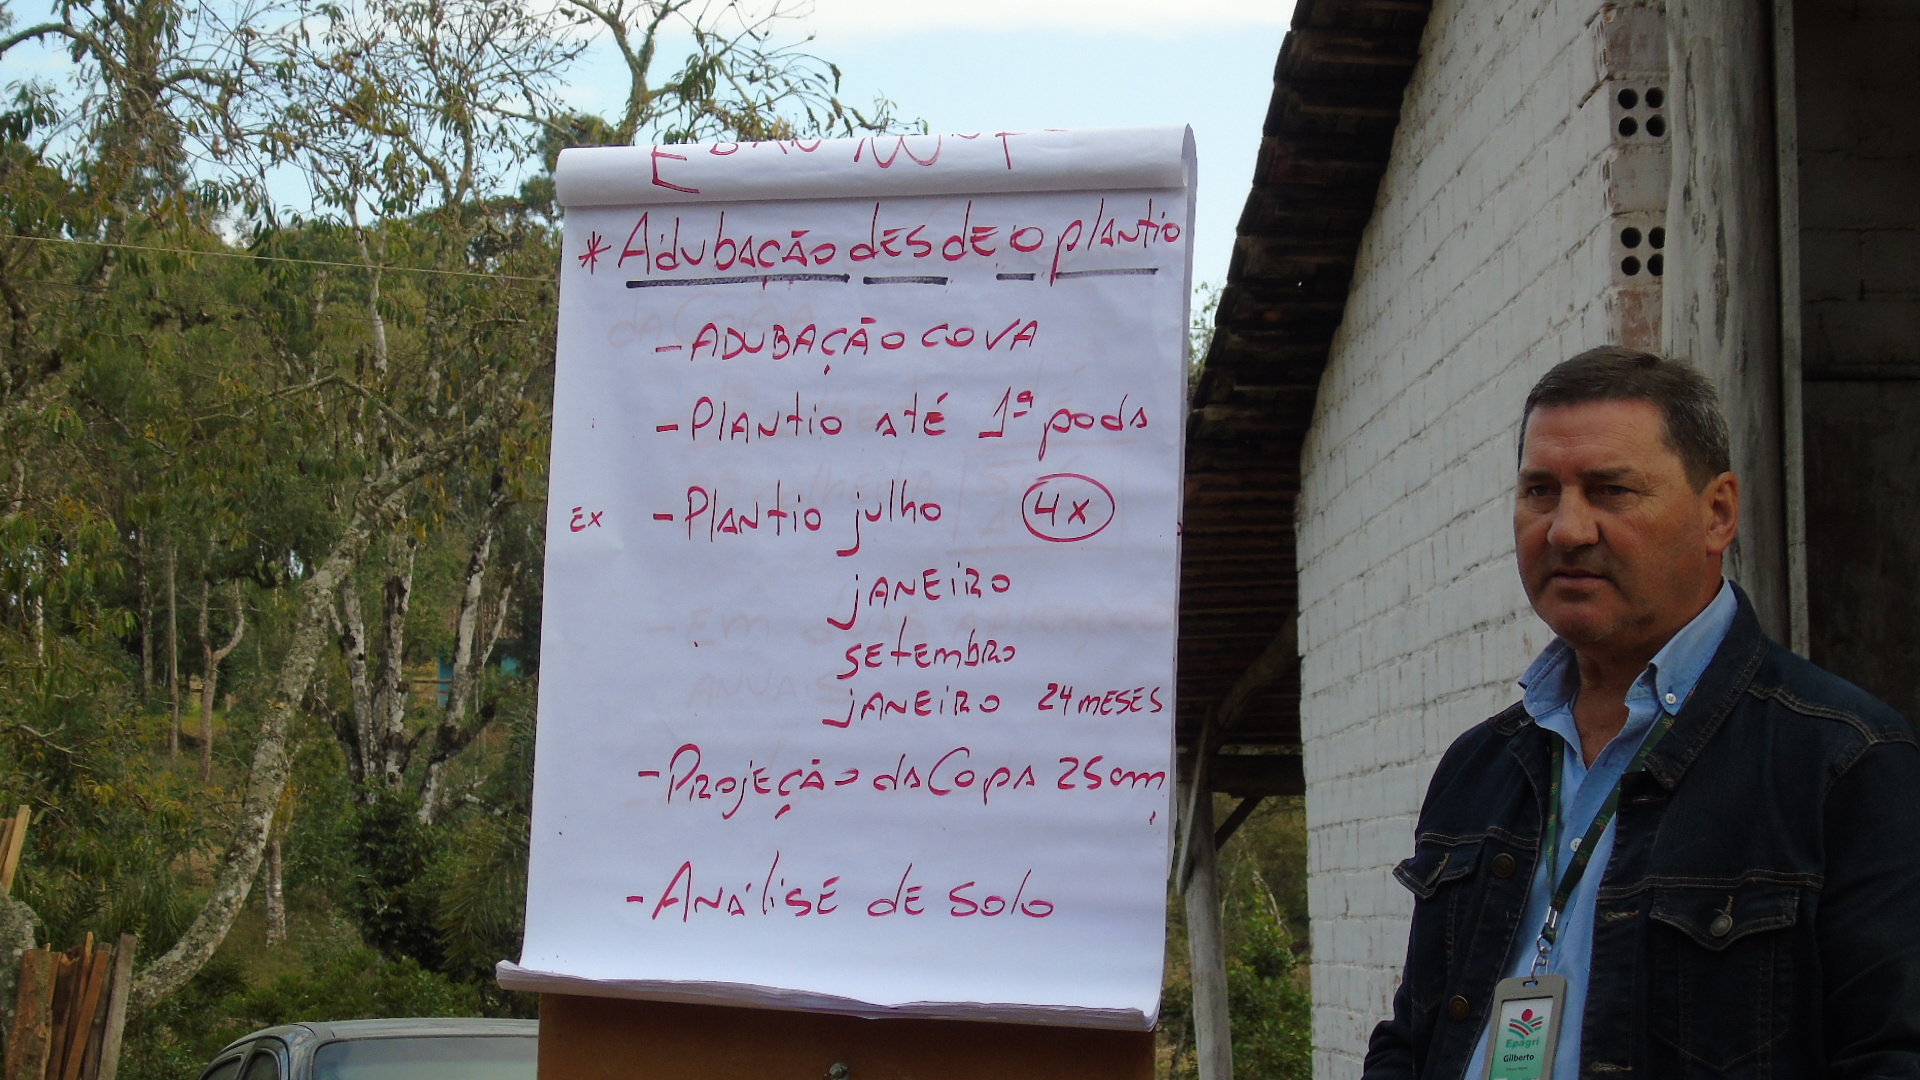 * Adubação desde o plantio
- ADUBAÇÃO COVA
- Plantio até 1ª poda
Ex - Plantio julho 4x
janeiro
setembro
janeiro 24 MESES
- Projeção da Copa 25cm
- Análise de Solo
Epagri
Gilberto